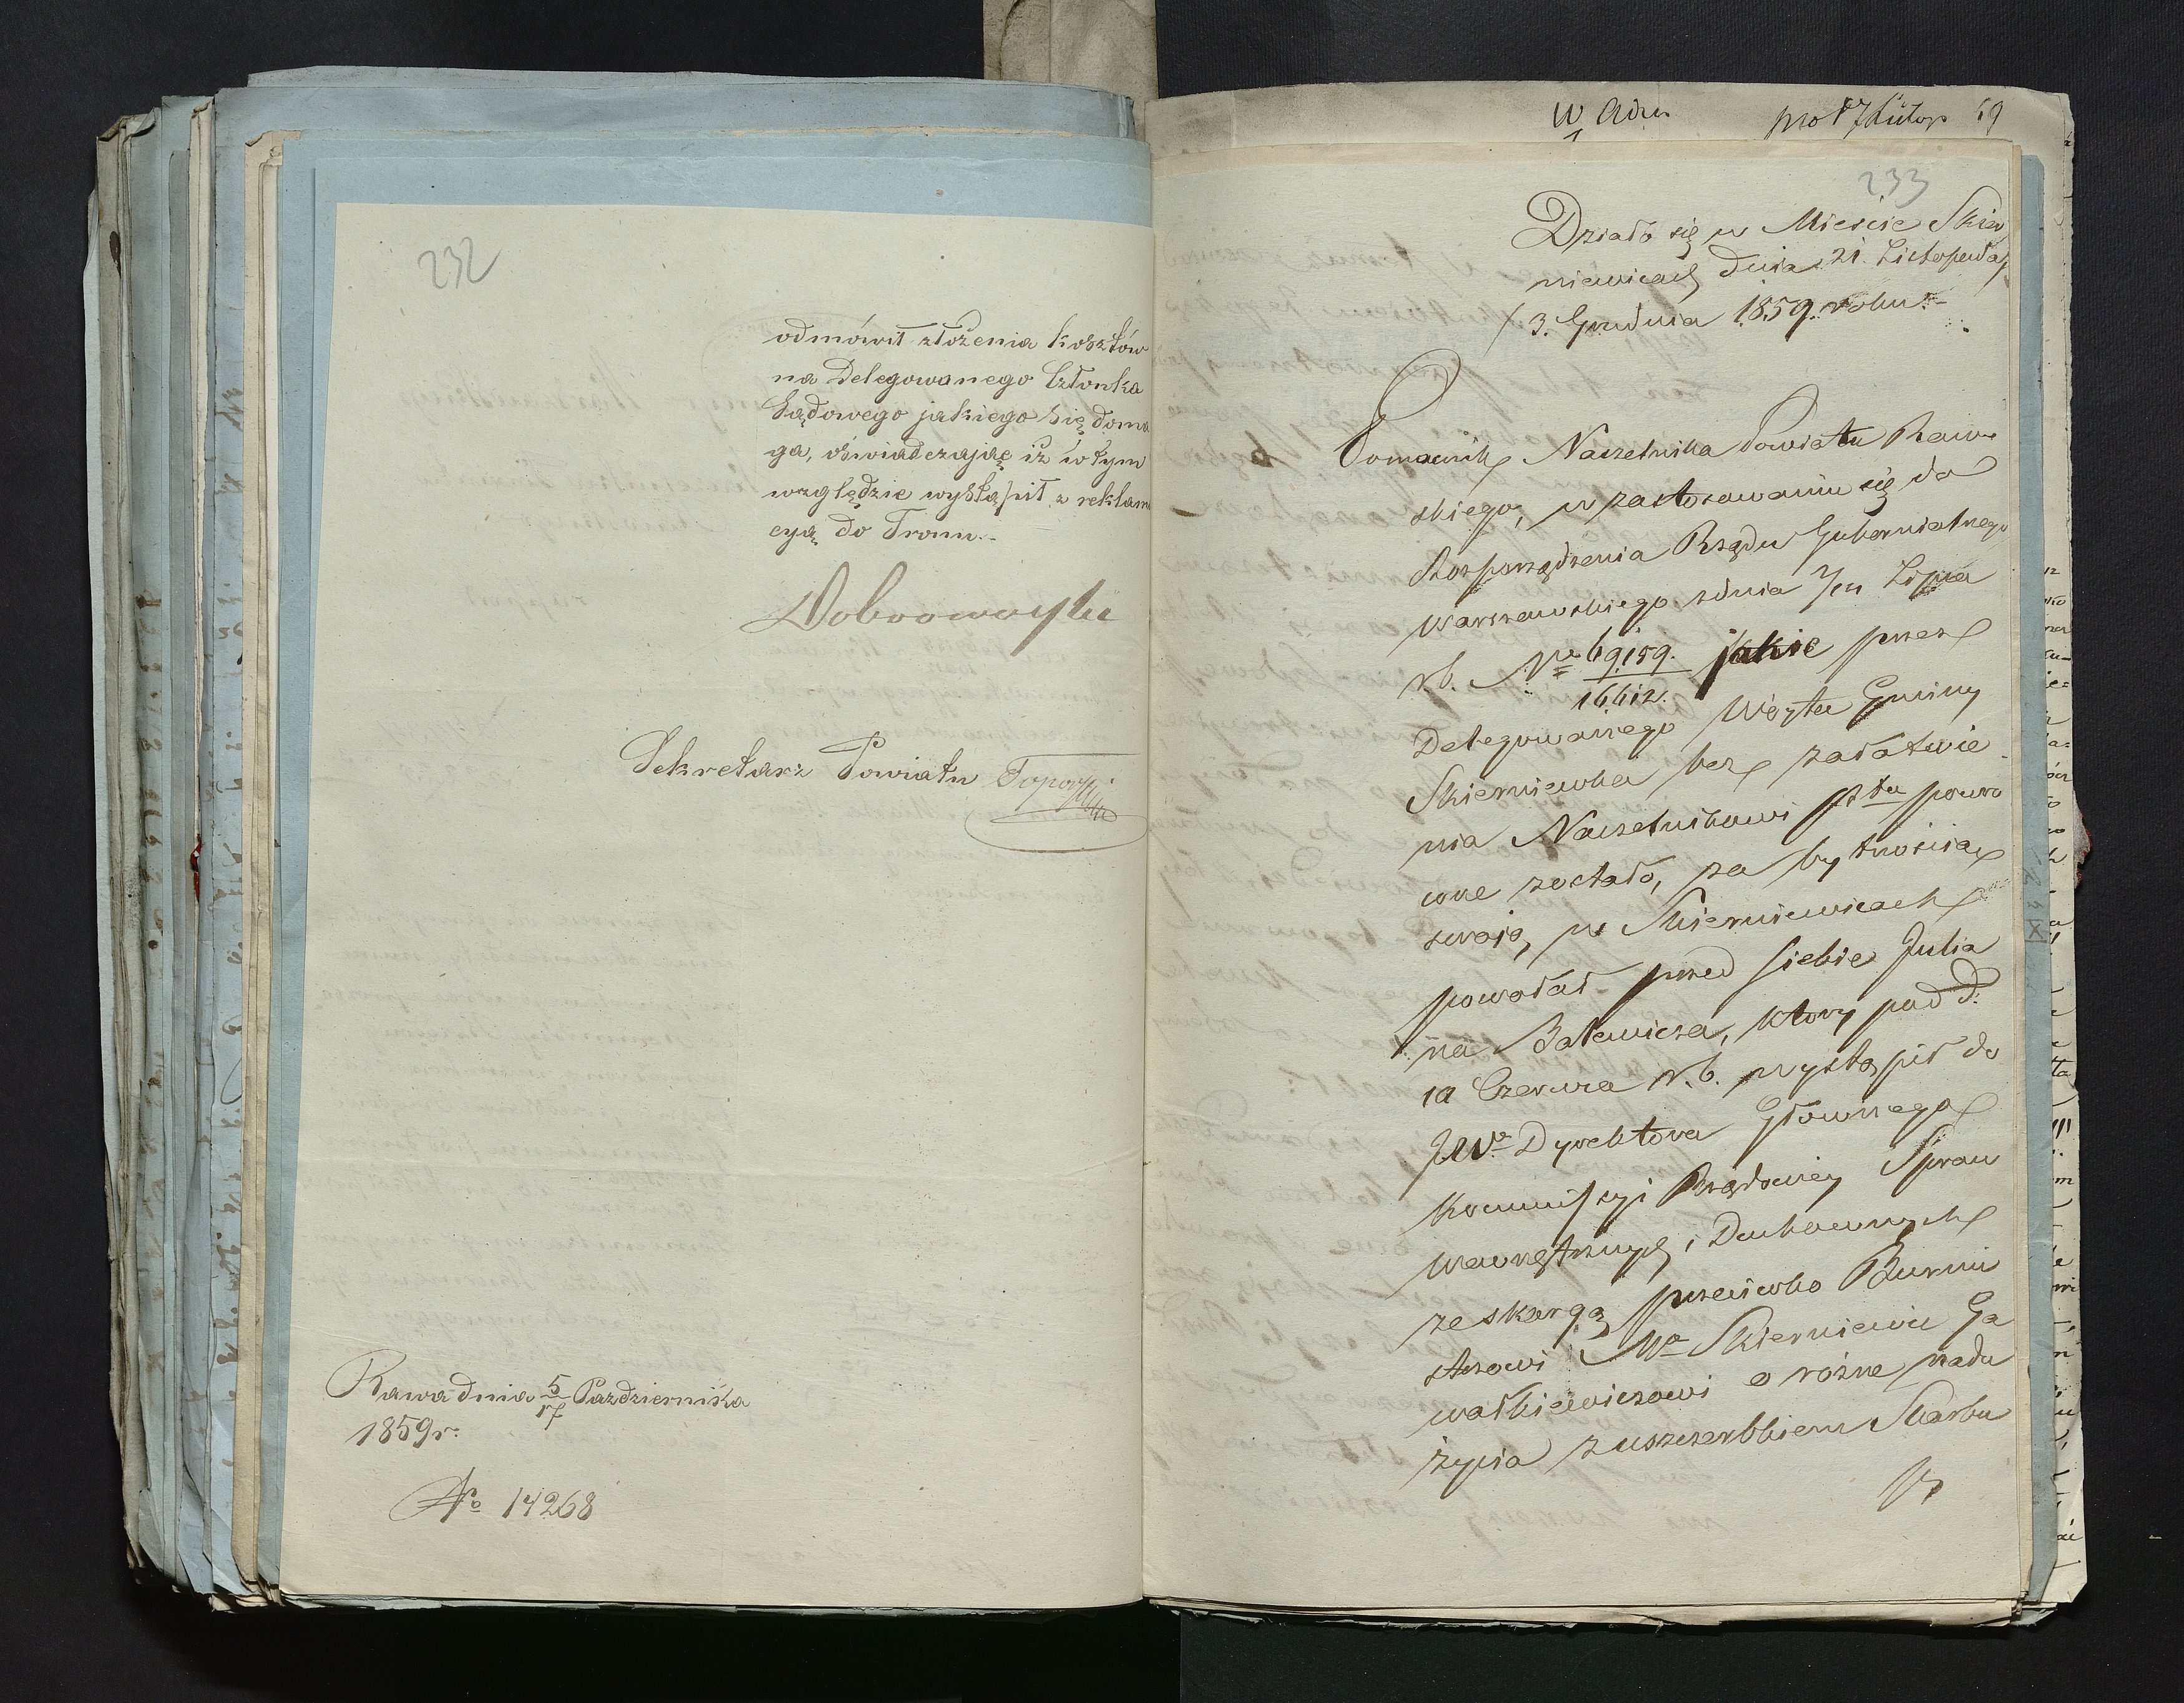 232
odmówił złożenia kosztów
na Delegowanego Członka
Sądowego jakiego się doma
ga, oświadczając iż w tym
względzie wystąpił z reklama
cyą do Tronu.-
Dobrowolski
Sekretarz Powiatu
Rawa dnia 5/17 Października
1859 r.
No 14268
W
233
Działo się w Mieście Skier
niewicach dnia 21. Listopada/
/3. Grudnia 1859. roku.-
Pomocnik Naczelnika Powiatu Raw-
skiego, w zastosowaniu się do
Rozporządzenia Rządu Gubernialnego
Warszawskiego z dnia Lipca
r.b. No 69,159./16,612. jakie przez
Delegowanego Wójta Gminy
Skierniewka bez załatwie-
nia Naczelnikowi Pttu powró
cone zostało, za bytnością
swoją w Skierniewicach
powołał przed siebie Julia
na Batewicza, który pod d:
10 Czerwca r.b. wystąpił do
JWo Dyrektora Głównego
Kommissyi Rządowéy Spraw
Wewnętrznych i Duchownych
ze skargą przeciwko Burmi
strzowi Ma Skierniewic Ga
wałkiewiczowi o różne nadu
życia z uszczerbkiem Skarbu